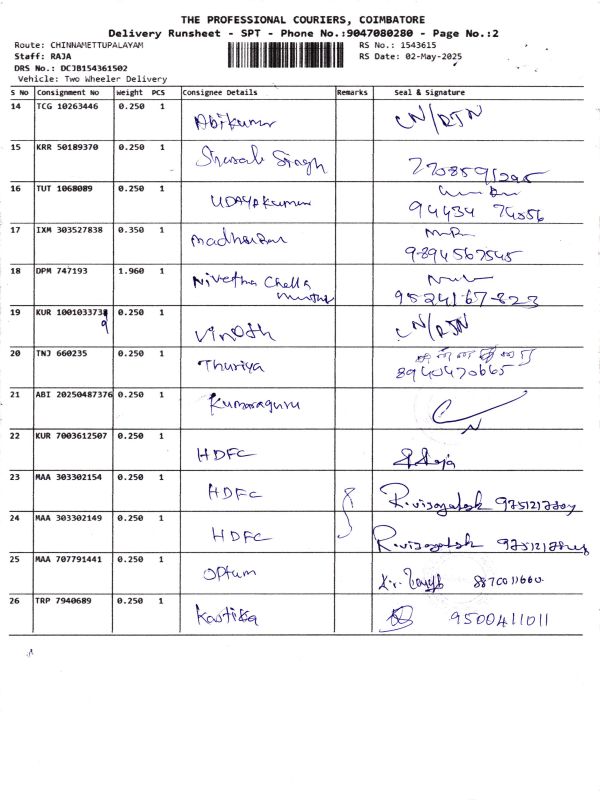 THE PROFESSIONAL COURIERS, COIMBATORE
Delivery Runsheet - SPT - Phone No.:9047080280 - Page No.:2
Route: CHINNAMETTUPALAYAM RS No.: 1543615
Staff: RAJA RS Date: 02-May-2025
DRS No.: DCJB154361502
Vehicle: Two Wheeler Delivery
S No Consignment No Weight PCS Consignee Details Remarks Seal & Signature
14 TCG 10263446 0.250 1 Abikumar CN/RTN
15 KRR 50189370 0.250 1 Singh
16 TUT 1068089 0.250 1 UDAYAKumar
94434 74056
17 IXM 303527838 0.350 1
9894567545
18 DPM 747193 1.960 1 Nivetha Chella
9524167823
19 KUR 1001033738 0.250 1 Vinoth CN/RTN
9
20 TNJ 660235 0.250 1 Thuriya
8940470665
21 ABI 20250487376 0.250 1 Kumaraguru
22 KUR 7003612507 0.250 1 HDFC
23 MAA 303302154 0.250 1 HDFC
24 MAA 303302149 0.250 1 HDFC
25 MAA 707791441 0.250 1 Optum
26 TRP 7940689 0.250 1 9500411011